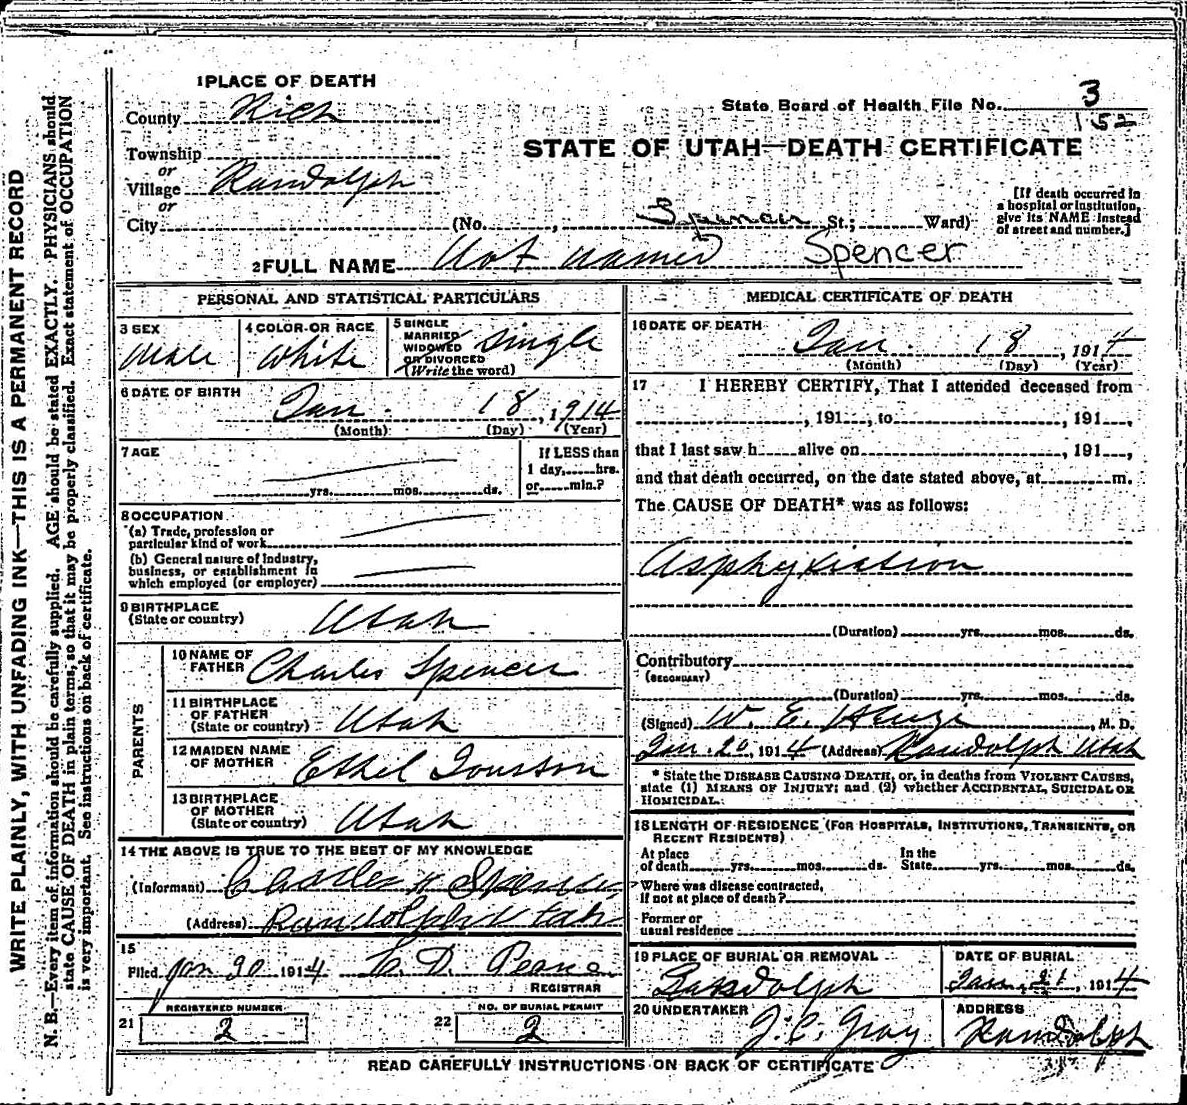 WRITE PLAINLY, WITH UNFADING INK—THIS IS A PERMANENT RECORD
N. B.—Every item of information should be carefully supplied. AGE should be stated EXACTLY. PHYSICIANS should
state CAUSE OF DEATH in plain terms, so that it may be properly classified. Exact statement of OCCUPATION
is very important. See instructions on back of certificate.
1 PLACE OF DEATH
State Board of Health File No. 3
152
County Rich
STATE OF UTAH—DEATH CERTIFICATE
Township
or
Village Randolph
or
City (No. , Spencer St.; Ward)
[If death occurred in
a hospital or institution,
give its NAME instead
of street and number.]
2 FULL NAME Not named Spencer
PERSONAL AND STATISTICAL PARTICULARS
3 SEX
Male
4 COLOR OR RACE
White
5 SINGLE
MARRIED
WIDOWED
OR DIVORCED
(Write the word)
Single
6 DATE OF BIRTH
Jan. 18, 1914
(Month) (Day) (Year)
7 AGE
yrs. mos. ds.
If LESS than
1 day, hrs.
or min.?
8 OCCUPATION
(a) Trade, profession or
particular kind of work
(b) General nature of industry,
business, or establishment in
which employed (or employer)
9 BIRTHPLACE
(State or country)
Utah
PARENTS
10 NAME OF
FATHER
Charles Spencer
11 BIRTHPLACE
OF FATHER
(State or country)
Utah
12 MAIDEN NAME
OF MOTHER
Ethel
13 BIRTHPLACE
OF MOTHER
(State or country)
Utah
14 THE ABOVE IS TRUE TO THE BEST OF MY KNOWLEDGE
(Informant) Charles Spencer
(Address) Randolph Utah
15
Filed Jan 20 1914
REGISTRAR
REGISTERED NUMBER
21 2
NO. OF BURIAL PERMIT
22 2
MEDICAL CERTIFICATE OF DEATH
16 DATE OF DEATH
Jan. 18, 1914
(Month) (Day) (Year)
17 I HEREBY CERTIFY, That I attended deceased from
, 191 , to , 191 ,
that I last saw h alive on , 191 ,
and that death occurred, on the date stated above, at m.
The CAUSE OF DEATH* was as follows:
Asphyxiation
(Duration) yrs. mos. ds.
Contributory
(SECONDARY)
(Duration) yrs. mos. ds.
(Signed) W. E. M. D.
Jan. 20, 1914 (Address) Randolph Utah
* State the DISEASE CAUSING DEATH, or, in deaths from VIOLENT CAUSES,
state (1) MEANS OF INJURY; and (2) whether ACCIDENTAL, SUICIDAL OR
HOMICIDAL.
18 LENGTH OF RESIDENCE (FOR HOSPITALS, INSTITUTIONS, TRANSIENTS, OR
RECENT RESIDENTS)
At place
of death yrs. mos. ds.
In the
State yrs. mos. ds.
Where was disease contracted,
if not at place of death?
Former or
usual residence
19 PLACE OF BURIAL OR REMOVAL
Randolph
DATE OF BURIAL
Jan. 21, 1914
20 UNDERTAKER
J. C. Gray
ADDRESS
Randolph
READ CAREFULLY INSTRUCTIONS ON BACK OF CERTIFICATE